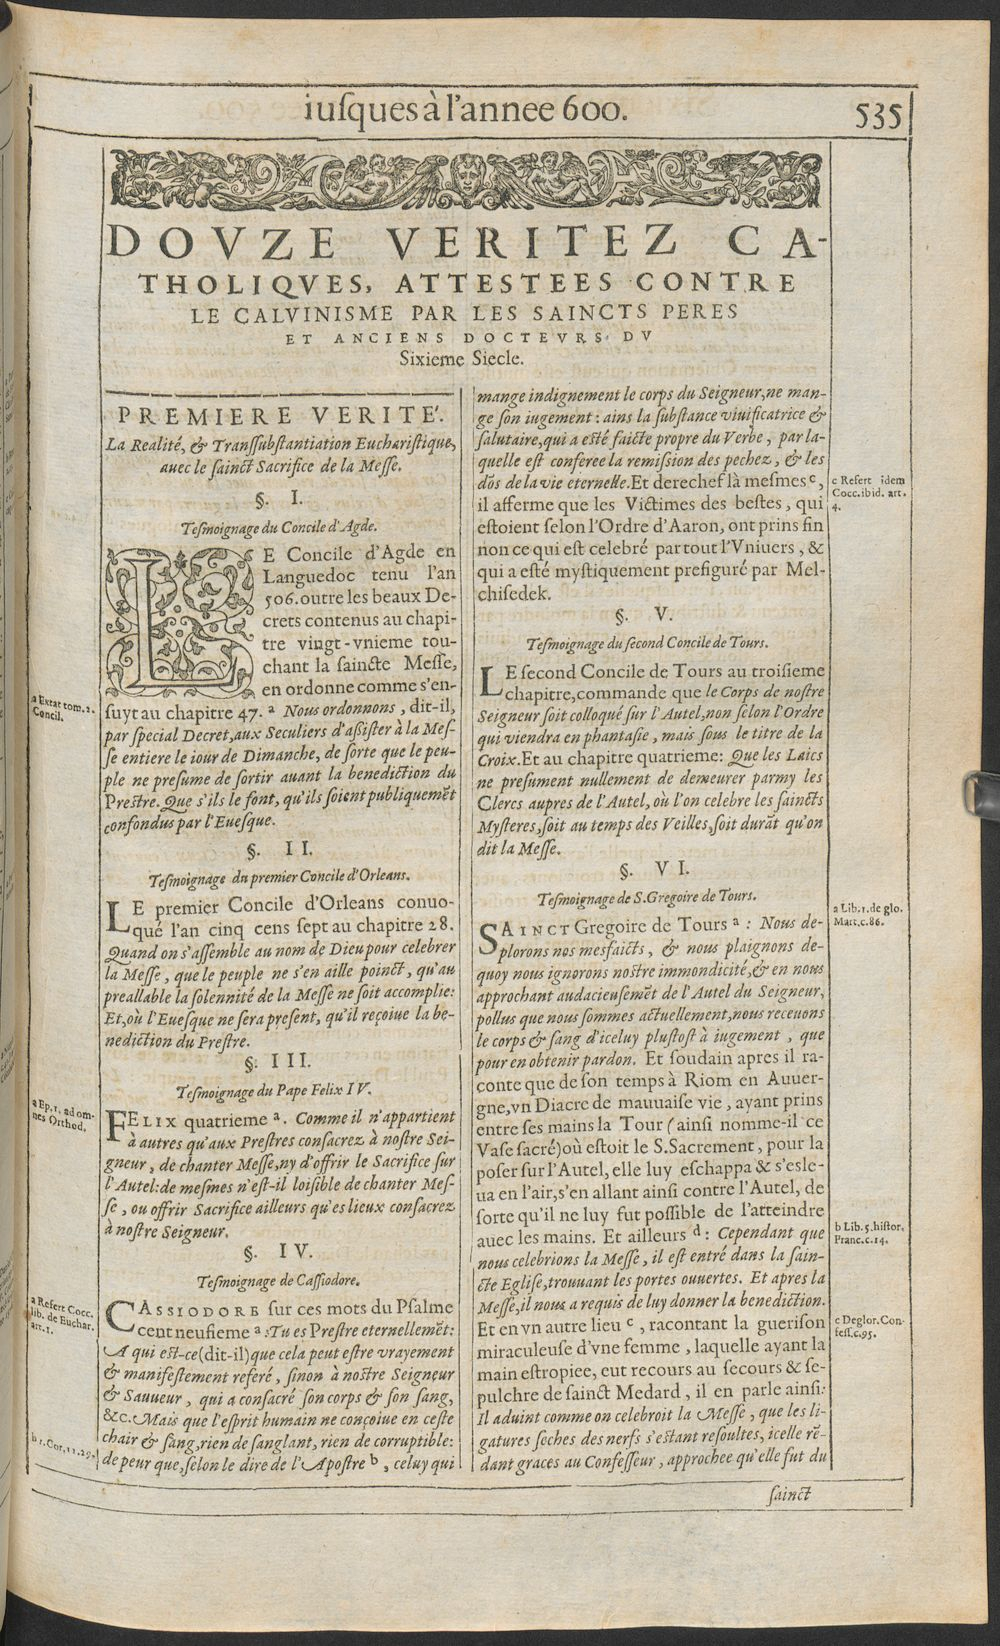 iuſques à l'annee 600.
535
DOVZE VERITEZ CA-
THOLIQVES, ATTESTEES CONTRE
LE CALVINISME PAR LES SAINCTS PERES
ET ANCIENS DOCTEVRS DV
Sixieme Siecle.
PREMIERE VERITE'.
La Realité, & Tranſſubſtantiation Euchariſtique,
auec le ſainct Sacrifice de la Meſſe.
§. I.
Teſmoignage du Concile d'Agde.
LE Concile d'Agde en
Languedoc tenu l'an
506. outre les beaux De-
crets contenus au chapi-
tre vingt-vnieme tou-
chant la ſaincte Meſſe,
en ordonne comme s'en-
ſuyt au chapitre 47. a Nous ordonnons, dit-il,
par ſpecial Decret, aux Seculiers d'aſſiſter à la Meſ-
ſe entiere le iour de Dimanche, de ſorte que le peu-
ple ne preſume de ſortir auant la benediction du
Preſtre. Que s'ils le font, qu'ils ſoient publiquemẽt
confondus par l'Eueſque.
§. II.
Teſmoignage du premier Concile d'Orleans.
LE premier Concile d'Orleans conuo-
qué l'an cinq cens ſept au chapitre 28.
Quand on s'aſſemble au nom de Dieu pour celebrer
la Meſſe, que le peuple ne s'en aille poinct, qu'au
preallable la ſolennité de la Meſſe ne ſoit accomplie:
Et, où l'Eueſque ne ſera preſent, qu'il reçoiue la be-
nediction du Preſtre.
§. III.
Teſmoignage du Pape Felix IV.
FELIX quatrieme a. Comme il n'appartient
à autres qu'aux Preſtres conſacrez à noſtre Sei-
gneur, de chanter Meſſe, ny d'offrir le Sacrifice ſur
l'Autel: de meſmes n'eſt-il loiſible de chanter Meſ-
ſe, ou offrir Sacrifice ailleurs qu'es lieux conſacrez
à noſtre Seigneur.
§. IV.
Teſmoignage de Caſſiodore.
CASSIODORE ſur ces mots du Pſalme
cent neufieme a: Tu es Preſtre eternellemẽt:
A qui eſt-ce (dit-il) que cela peut eſtre vrayement
& manifeſtement referé, ſinon à noſtre Seigneur
& Sauueur, qui a conſacré ſon corps & ſon ſang,
&c. Mais que l'eſprit humain ne conçoiue en ceſte
chair & ſang, rien de ſanglant, rien de corruptible:
de peur que, ſelon le dire de l'Apoſtre b, celuy qui
a Extat tom. 2.
Concil.
a Ep. 1. ad om-
nes Orthod.
a Refert Cocc.
lib. de Euchar.
art. 1.
b 1. Cor. 11. 29.
mange indignement le corps du Seigneur, ne man-
ge ſon iugement: ains la ſubſtance viuificatrice &
ſalutaire, qui a eſté faicte propre du Verbe, par la-
quelle eſt conferee la remiſſion des pechez, & les
dõs de la vie eternelle. Et derechef là meſmes c,
il afferme que les Victimes des beſtes, qui
eſtoient ſelon l'Ordre d'Aaron, ont prins fin
non ce qui eſt celebré par tout l'Vniuers, &
qui a eſté myſtiquement prefiguré par Mel-
chiſedek.
§. V.
Teſmoignage du ſecond Concile de Tours.
LE ſecond Concile de Tours au troiſieme
chapitre, commande que le Corps de noſtre
Seigneur ſoit colloqué ſur l'Autel, non ſelon l'Ordre
qui viendra en phantaſie, mais ſous le titre de la
Croix. Et au chapitre quatrieme: Que les Laics
ne preſument nullement de demeurer parmy les
Clercs aupres de l'Autel, où l'on celebre les ſaincts
Myſteres, ſoit au temps des Veilles, ſoit durãt qu'on
dit la Meſſe.
§. VI.
Teſmoignage de S. Gregoire de Tours.
SAINCT Gregoire de Tours a: Nous de-
plorons nos mesfaicts, & nous plaignons de-
quoy nous ignorons noſtre immondicité, & en nous
approchant audacieuſemẽt de l'Autel du Seigneur,
pollus que nous ſommes actuellement, nous receuons
le corps & ſang d'iceluy pluſtoſt à iugement, que
pour en obtenir pardon. Et ſoudain apres il ra-
conte que de ſon temps à Riom en Auuer-
gne, vn Diacre de mauuaiſe vie, ayant prins
entre ſes mains la Tour (ainſi nomme-il ce
Vaſe ſacré) où eſtoit le S. Sacrement, pour la
poſer ſur l'Autel, elle luy eſchappa & s'esle-
ua en l'air, s'en allant ainſi contre l'Autel, de
ſorte qu'il ne luy fut poſſible de l'atteindre
auec les mains. Et ailleurs d: Cependant que
nous celebrions la Meſſe, il eſt entré dans la ſain-
cte Egliſe, trouuant les portes ouuertes. Et apres la
Meſſe, il nous a requis de luy donner la benediction.
Et en vn autre lieu c, racontant la gueriſon
miraculeuſe d'vne femme, laquelle ayant la
main eſtropiee, eut recours au ſecours & ſe-
pulchre de ſainct Medard, il en parle ainſi:
Il aduint comme on celebroit la Meſſe, que les li-
gatures ſeches des nerfs s'eſtant reſoultes, icelle rẽ-
dant graces au Confeſſeur, approchee qu'elle fut du
ſainct
c Refert idem
Cocc. ibid. art.
4.
a Lib. 1. de glo.
Mart. c. 86.
b Lib. 5. hiſtor.
Franc. c. 14.
c De glor. Con-
feſſ. c. 95.